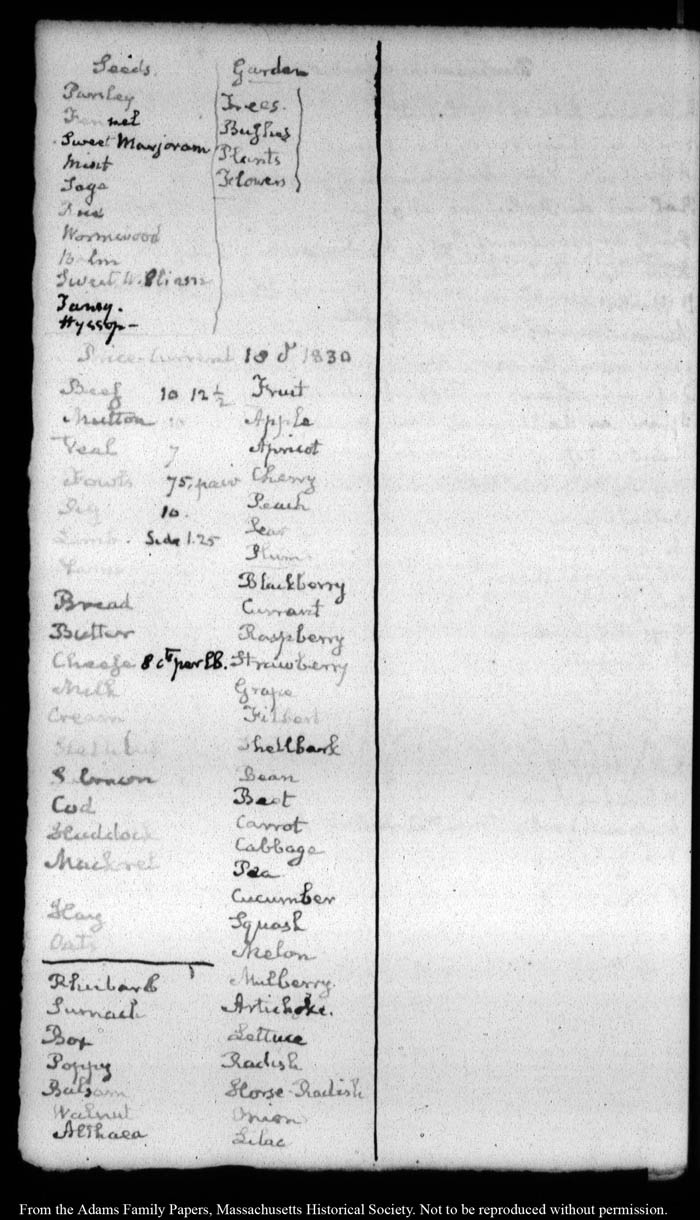 Seeds.
Parsley
Fennel
Sweet Marjoram
Mint
Sage
Rue
Wormwood
Balm
Sweet William
Tansy.
Hyssop -
Garden
Trees.
Bushes
Plants
Flowers
Price-Current 18 1830
Beef 10 12½
Mutton 10
Veal 7
Fowls 75. pair
Pig 10.
Lamb. Side 1.25
Bread
Butter
Cheese 8 cts per lb.
Milk
Cream
Salmon
Cod
Haddock
Mackrel
Hay
Oats
Rhubarb
Sumach
Box
Poppy
Balsam
Walnut
Althaea
Fruit
Apple
Apricot
Cherry
Peach
Pear
Plum
Blackberry
Currant
Raspberry
Strawberry
Grape
Filbert
Shellbark
Bean
Beet
Carrot
Cabbage
Pea
Cucumber
Squash
Melon
Mulberry.
Artichoke.
Lettuce
Radish
Horse-Radish
Onion
Lilac
From the Adams Family Papers, Massachusetts Historical Society. Not to be reproduced without permission.